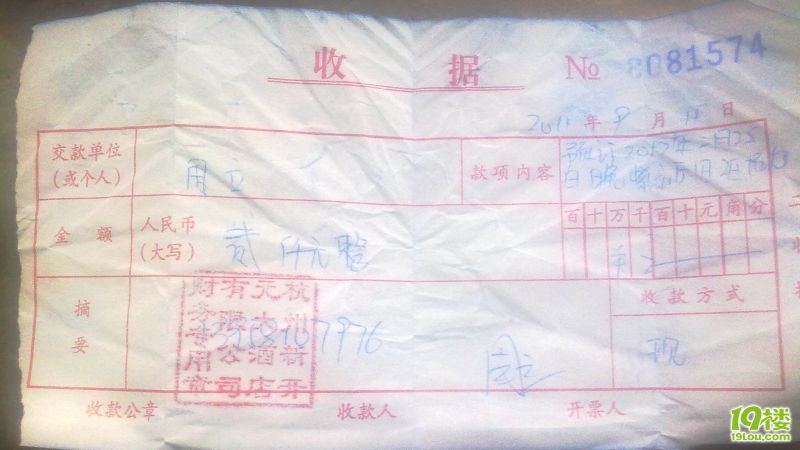 收 据 № 8081574
2011年8月11日
交款单位
(或个人)
周立
款项内容
预订2012年2月25
日晚
金 额
人民币
(大写)
贰仟元整
百十万千百十元角分
¥2
摘
要
杭州新开
元大酒店
有限公司
财务专用章
收款方式
现
周立
收款公章 收款人 开票人
19楼
19Lou.com